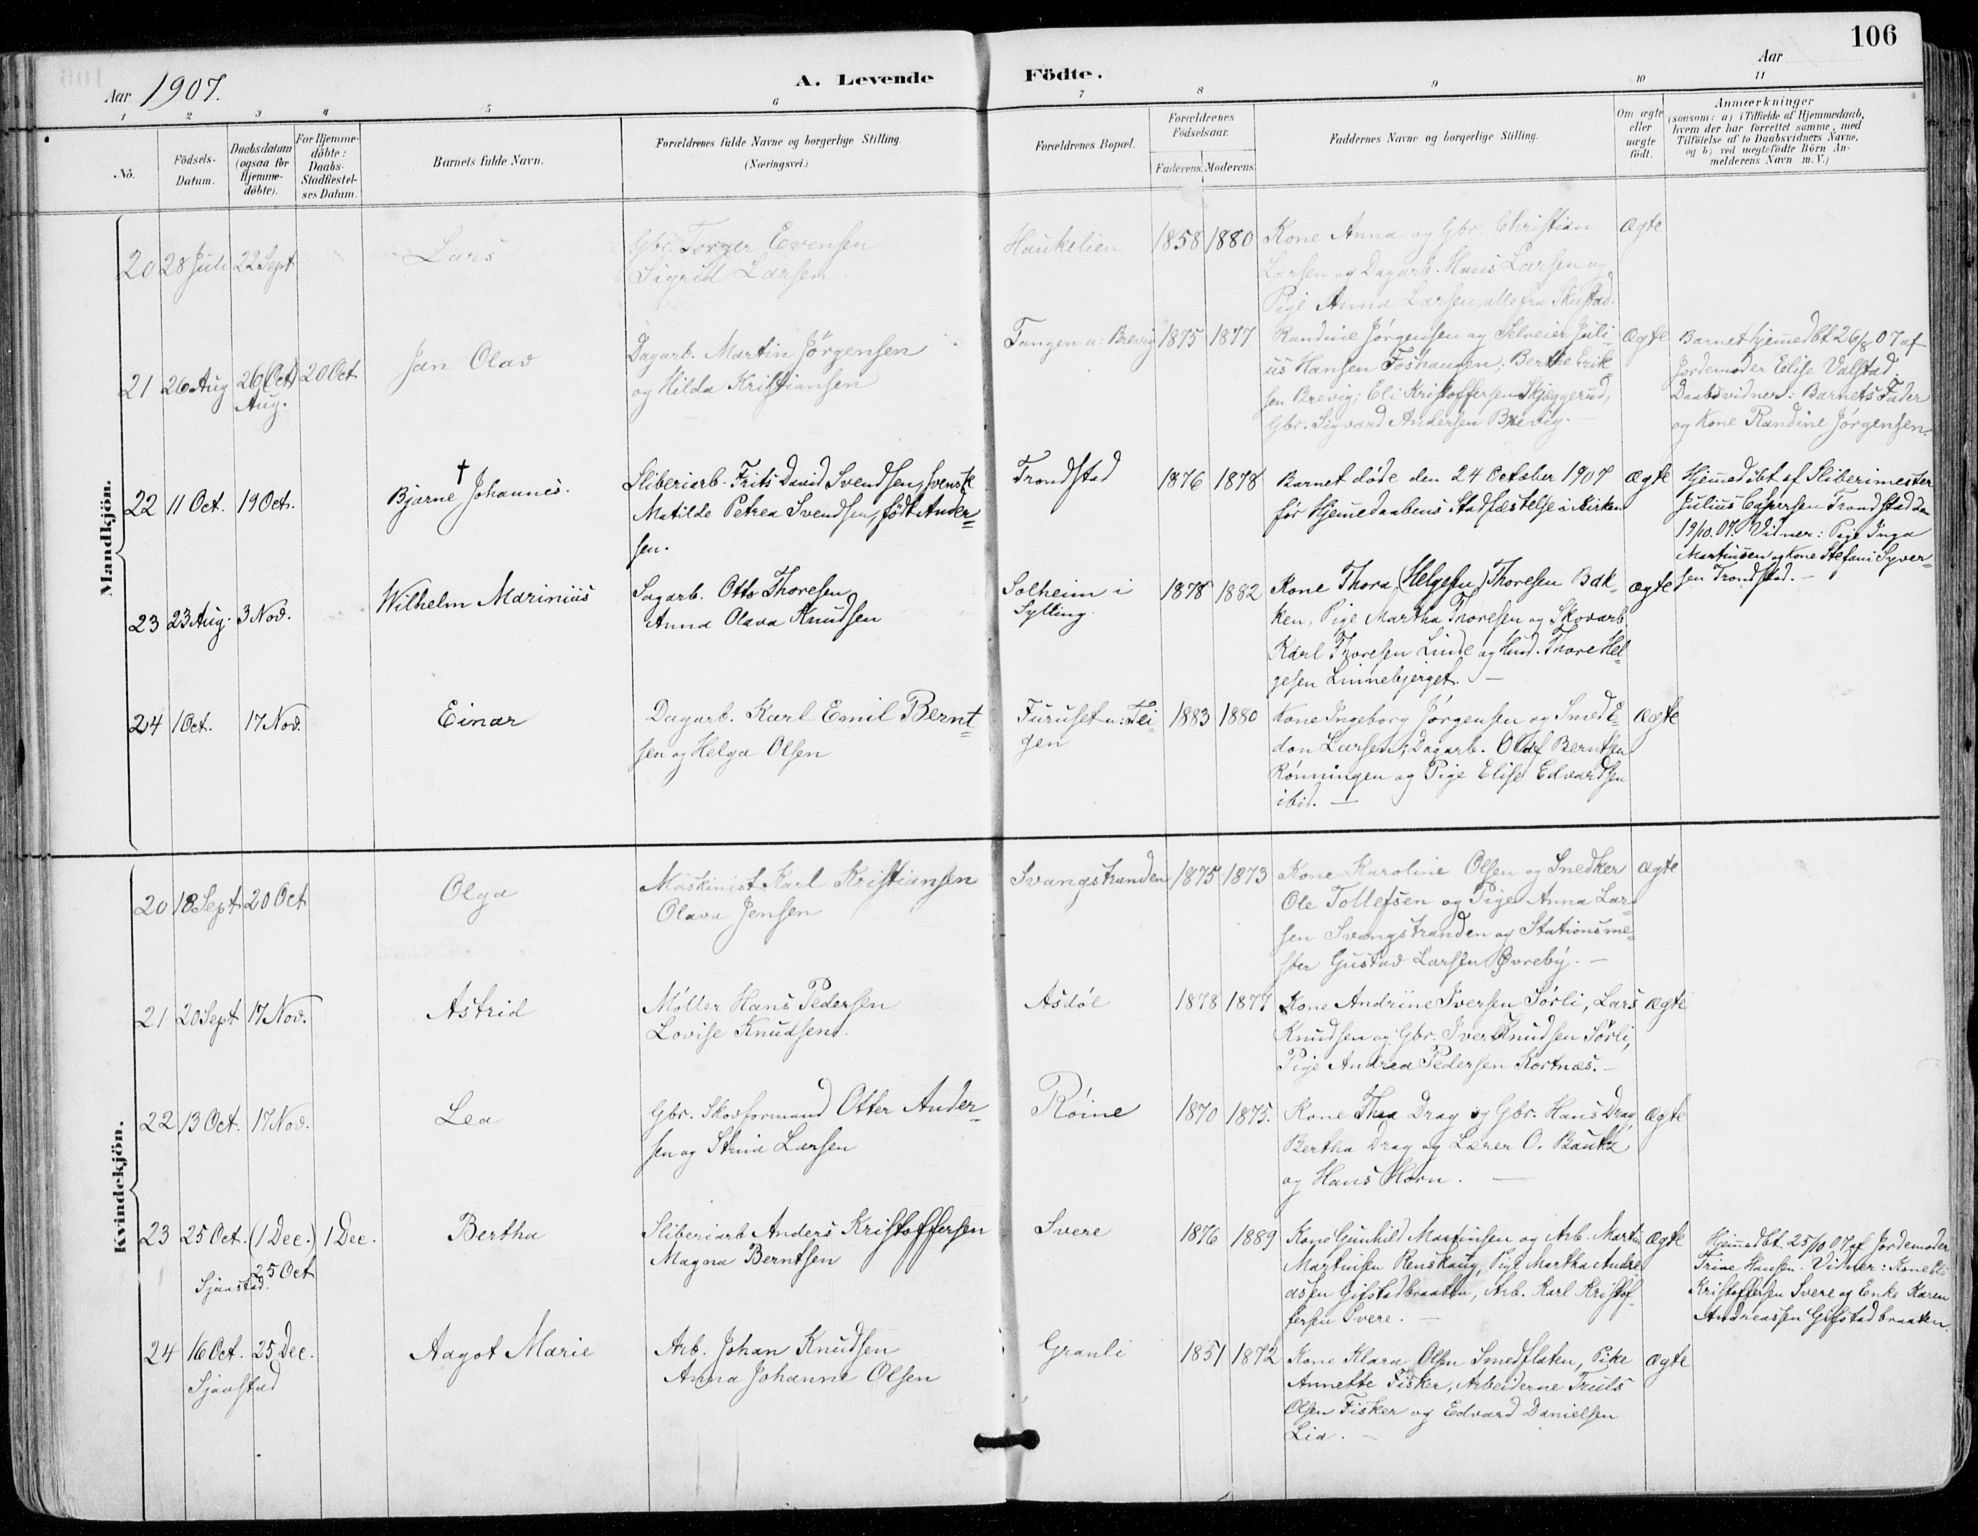 106
Aar 1907.
A. Levende Födte.
Aar
1 2 3 4 5 6 7 8 9 10 11
No.
Födsels-Datum.
Daabsdatum (ogsaa for Hjemme-döbte).
For Hjemme-döbte: Daabs-Stadfæstel-ses Datum.
Barnets fulde Navn.
Forældrenes fulde Navne og borgerlige Stilling (Næringsvei.)
Forældrenes Bopæl.
Forældrenes Födselsaar.
Faderens. Moderens.
Faddernes Navne og borgerlige Stilling.
Om ægte eller uægte födt.
Anmærkninger
(saasom: a) i Tilfælde af Hjemmedaab,
hvem der har forrettet samme, med
Tilföielse af to Daabsvidners Navne,
og b) ved uægtefödte Börn An-
melderens Navn m. V.)
Mandkjön.
20 28 Juli 22 Sept
Lars
Gbr. Torger Evensen
Sigrid Larsen
Haukelien
1858 1880
Kone Anna og Gbr. Christian
Larsen og Dagarb. Hans Larsen og
Pige Anna Larsen, alle fra Skustad.
Ægte
21 26 Aug 26 (Oct) 20 Oct
Aug.
Jan Olav
Dagarb. Martin Jørgensen
og Hilda Kristiansen
Tangen u: Brevig
1875 1877
Randine Jørgensen og Selveier Juli
us Hansen Foshaugen; Berthe Erik-
sen Brevig; Eli Kristoffersen Skjæggerud,
Gbr. Sigvard Andersen Brevig.
Ægte
Barnet hjemedbt 26/8 07 af
Jordemoder Elise Valstad.
Daabsvidner: Barnets Fader
og Kone Randine Jørgensen.
22 11 Oct. 19 Oct.
† Bjarne Johannes.
Sliberiarb. Frits David Svendsen, svensk
Matilde Petrea Svendsen, født Ander-
sen.
Trondstad
1876 1878
Barnet døde den 24 October 1907
før Hjemedaabens Stadfæstelse i Kirken
Ægte
Hjemedøbt af Sliberimester
Julius Caspersen Trondstad den
19/10.07. Vidner: Pige Inga
Martinsen og Kone Stefani Syver-
sen Trondstad. —
23 23 Aug. 3 Nov.
Wilhelm Marinius
Sagarb. Otto Thoresen
Anna Olava Knudsen
Solheim i
Sylling.
1878 1882
Kone Thora (Helgesen) Thoresen Bak-
ken, Pige Martha Thoresen og Skovarb.
Karl Thoresen Linde og Husm. Thore Hel-
gesen Linnebjerget. —
Ægte
24 1 Oct. 17 Nov.
Einar
Dagarb. Karl Emil Bernt-
sen og Helga Olsen
Furuset u: Tei-
gen
1883 1880
Kone Ingeborg Jørgensen og Smed E-
don Larsen; Dagarb. Olaf Berntsen
Rønningen og Pige Elise Edvardsen
ibid. —
Ægte
Kvindekjön.
20 18 Sept 20 Oct
Olga
Maskinist Karl Kristiansen
Olava Jensen
Svangstranden
1875 1873
Kone Karoline Olsen og Snedker
Ole Tollefsen og Pige Anna Lar-
sen Svangstranden og Stationsme-
ster Gustav Larsen Øvreby. —
Ægte
21 20 Sept 17 Nov.
Astrid
Møller Hans Pedersen
Lovise Knudsen.
Asdøl
1878 1877
Kone Andrine Iversen Sørli, Lars
Knudsen og Gbr. Iver Knudsen Sørli,
Pige Andrea Pedersen Kortnæs. —
Ægte
22 13 Oct. 17 Nov.
Lea
Gbr. Skovformand Otter Ander-
sen og Stina Larsen
Røine
1870 1875.
Kone Thea Drag og Gbr. Hans Drag,
Bertha Drag og Lærer O. Bautz
og Hans Horn. —
Ægte
23 25 Oct. (1 Dec.) 1 Dec.
25 Oct
Sjaastad.
Bertha
Sliberiarb Anders Kristoffersen
Magna Berntsen
Svere
1876 1889
Kone Gunhild Martinsen og Arb. Martin
Martinsen Renskaug, Pige Martha Andre
assen Gifstadbraaten, Arb. Karl Kristof-
fersen Svere. —
Ægte
Hjemedbt. 25/10 07 af Jordemoder
Trine Hansen. Vidner: Kone Eli
Kristoffersen Svere og Enke Karen
Andreassen Gifstadbraaten.
24 16 Oct. 25 Dec.
Sjaastad
Aagot Marie
Arb. Johan Knudsen
Anna Johanne Olsen
Granli
1851 1872
Kone Klara Olsen Smedflaten, Pike
Annette Fisker, Arbeiderne Truls
Olsen Fisker og Edvard Danielsen
Lia. —
Ægte